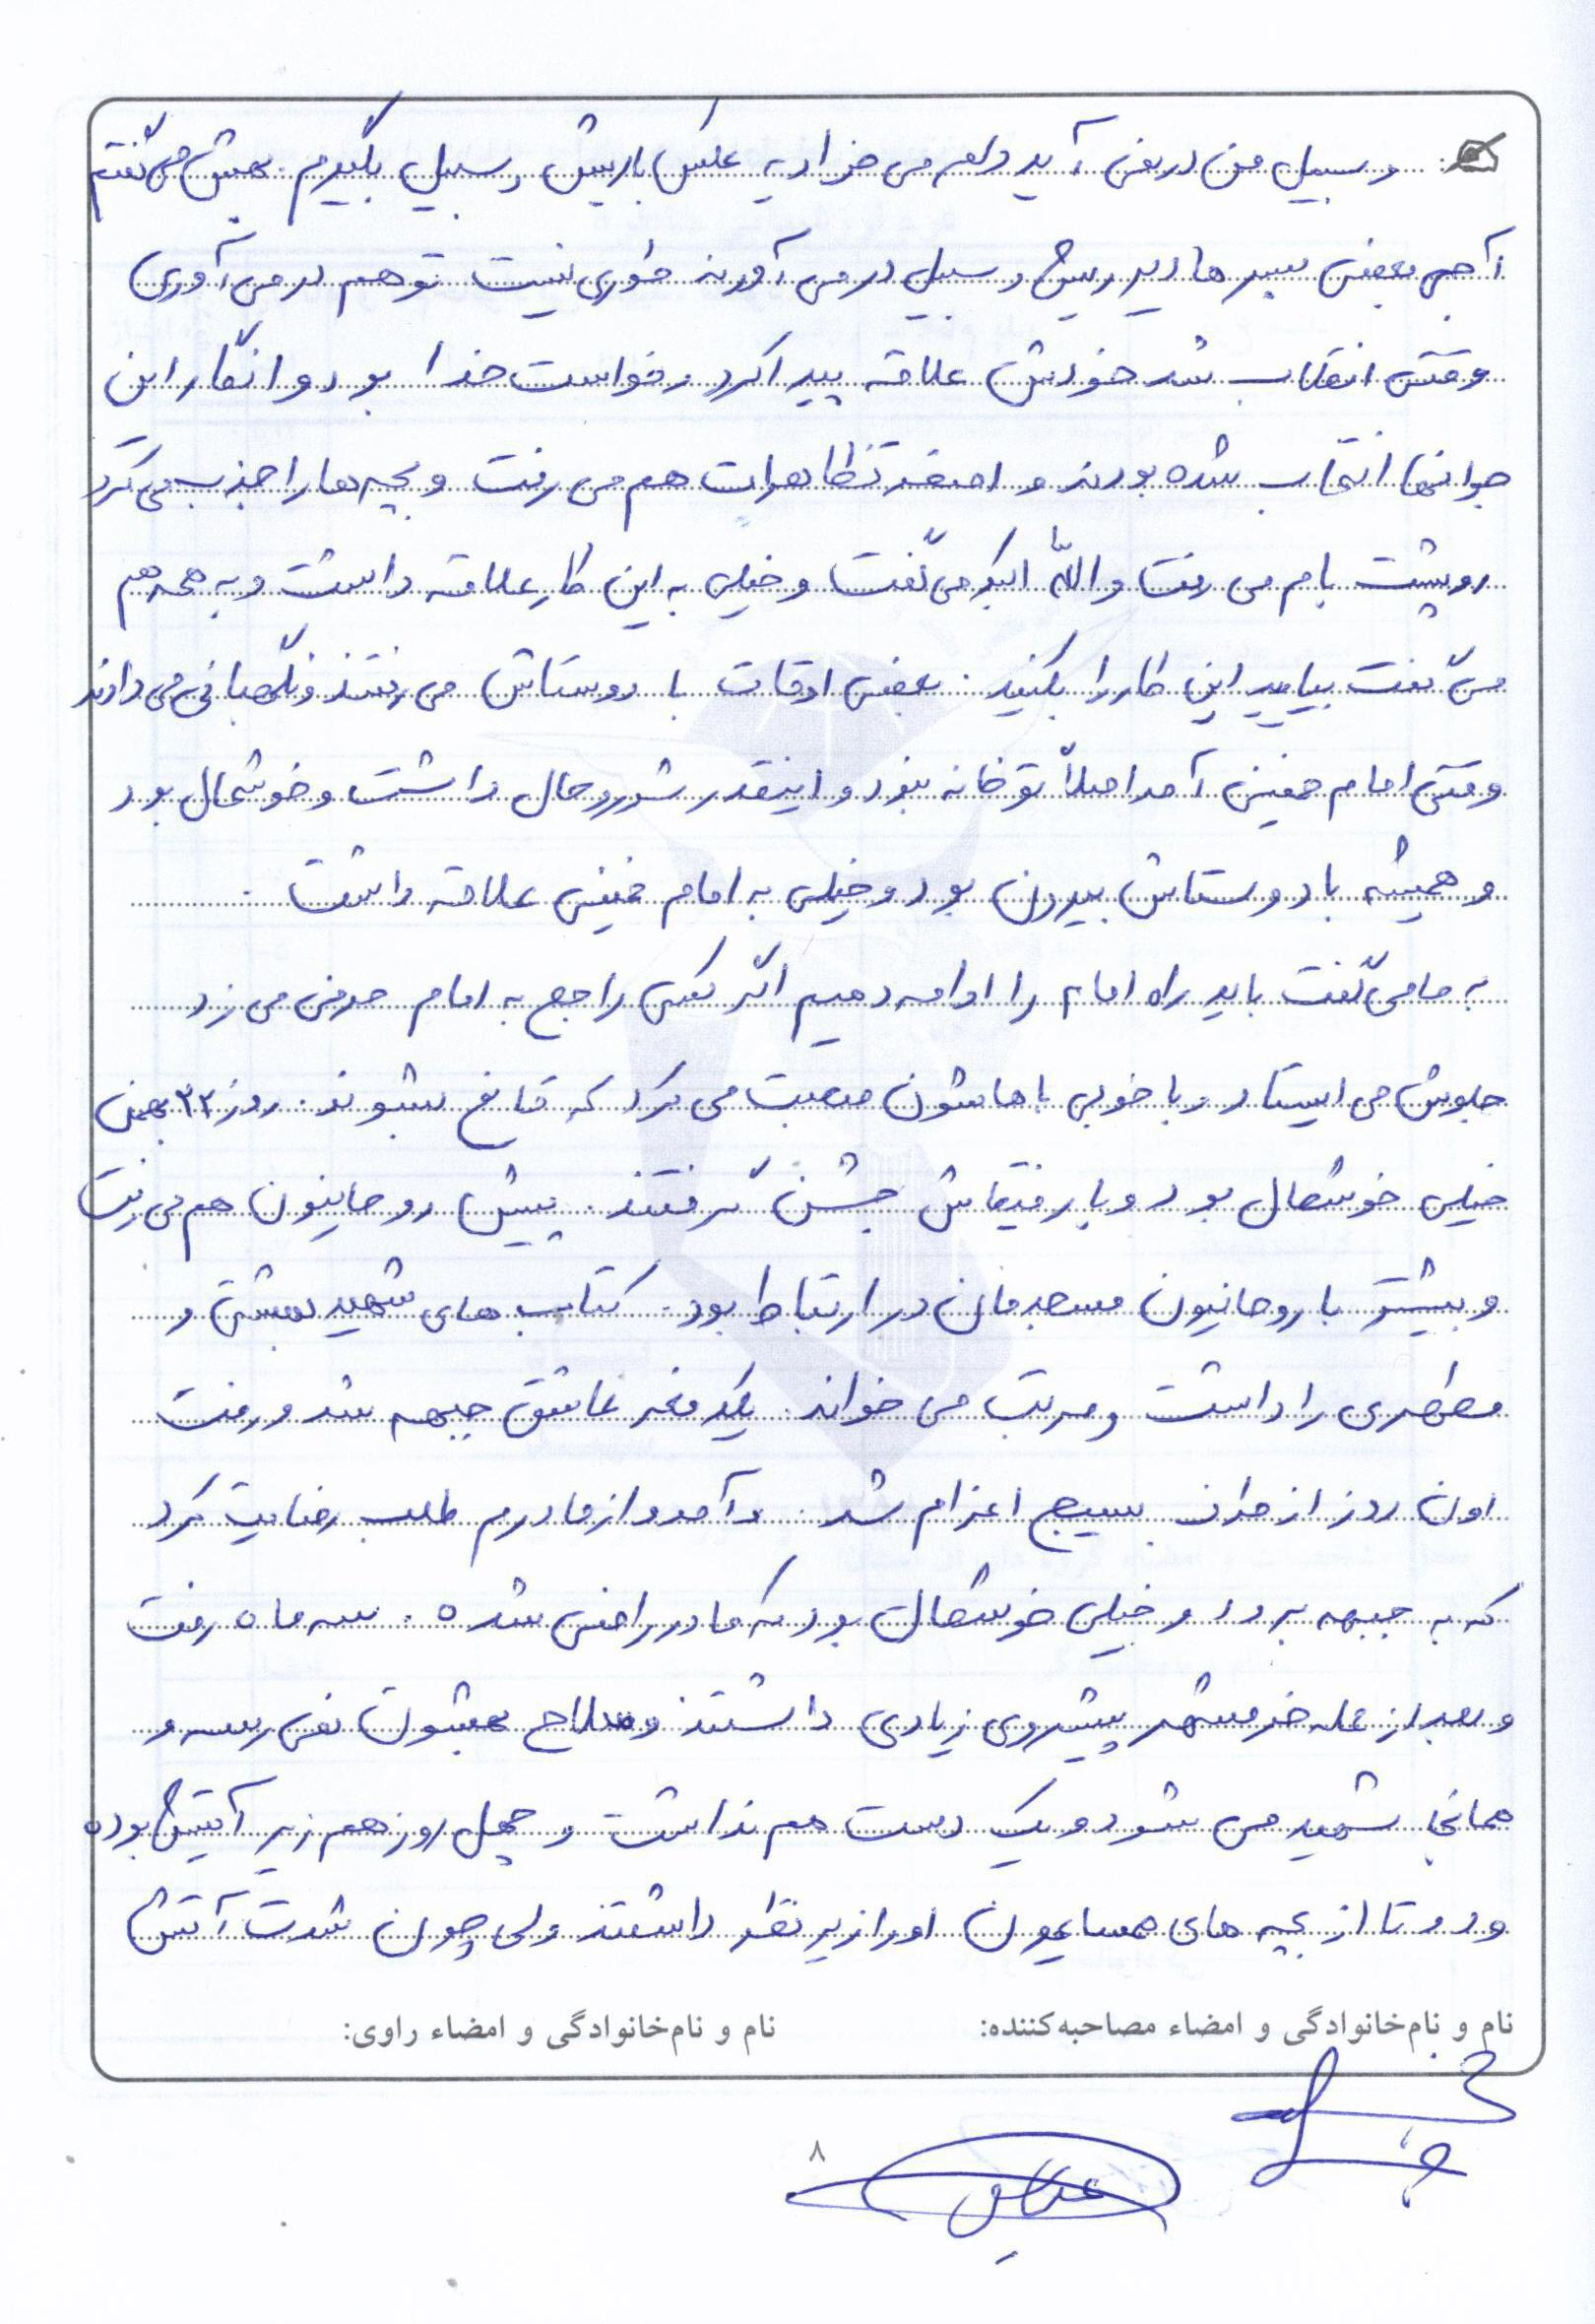 و سبیل من در نمی آید دلم می خواد یه عکس با ریش و سبیل بگیرم. بهش می گفتم
آجی بعضی پسرها دیر ریش و سبیل در می آورند طوری نیست تو هم در می آوری
وقتی انقلاب شد خودش علاقه پیدا کرد و خواست خدا بود و انگار این
جوانها انتخاب شده بودند و اصغر تظاهرات هم می رفت و بچه ها را جذب می کرد
رو پشت بام می رفت و الله اکبر می گفت و خیلی به این کار علاقه داشت و به همه هم
می گفت بیایید این کار را بکنید. بعضی اوقات با دوستاش می رفتند و نگهبانی می دادند
وقتی امام خمینی آمد اصلاً تو خانه نبود و اینقدر شور و حال داشت و خوشحال بود
و همیشه با دوستاش بیرون بود و خیلی به امام خمینی علاقه داشت.
به ما می گفت باید راه امام را ادامه دهیم اگر کسی راجع به امام حرفی می زد
جلوش می ایستاد و با خوبی باهاشون صحبت می کرد که قانع بشوند. روز ۲۲ بهمن
خیلی خوشحال بود و با رفیقاش جشن گرفتند. پیش روحانیون هم می رفت
و بیشتر با روحانیون مسجدمان در ارتباط بود. کتاب های شهید بهشتی و
مطهری را داشت و مرتب می خواند. یکدفعه عاشق جبهه شد و رفت
اون روز از طرف بسیج اعزام شد. و آمد و از مادرم طلب رضایت کرد
که به جبهه برود و خیلی خوشحال بود که مادر راضی شده. سه ماه رفت
و بعد از حمله خرمشهر پیشروی زیادی داشتند و سلاح بهشون نمی رسه و
همانجا شهید می شود و یک دست هم نداشت و چهل روز هم زیر آتیش بوده
و دو تا از بچه های همسایمون او را زیر نظر داشتند ولی چون شدت آتش
نام و نام‌خانوادگی و امضاء مصاحبه‌کننده:
نام و نام‌خانوادگی و امضاء راوی:
۸